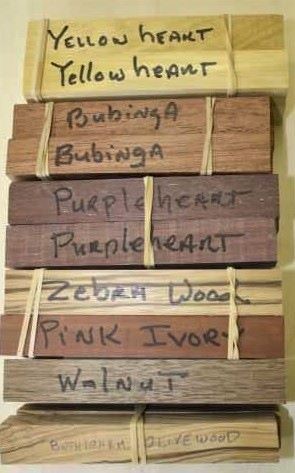 Yellow heart
Yellow heart
Bubinga
Bubinga
Purple heart
Purpleheart
Zebra Wood
Pink Ivory
Walnut
Bethlehem Olivewood